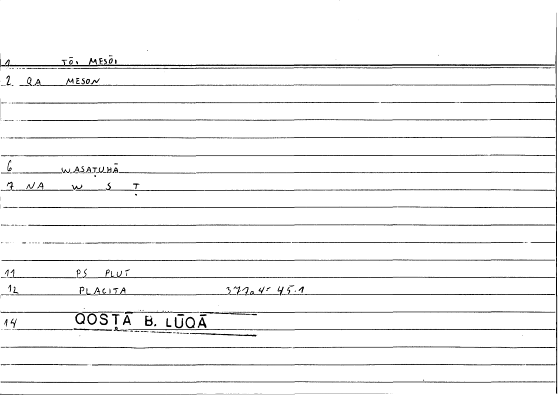 1 TŌI MESŌI
2. QA MESON
6 WASAṬUHĀ
7 NA W S Ṭ
11 PS PLUT
12 PLACITA 377a4- 45.1
14 QOSṬĀ B. LŪQĀ